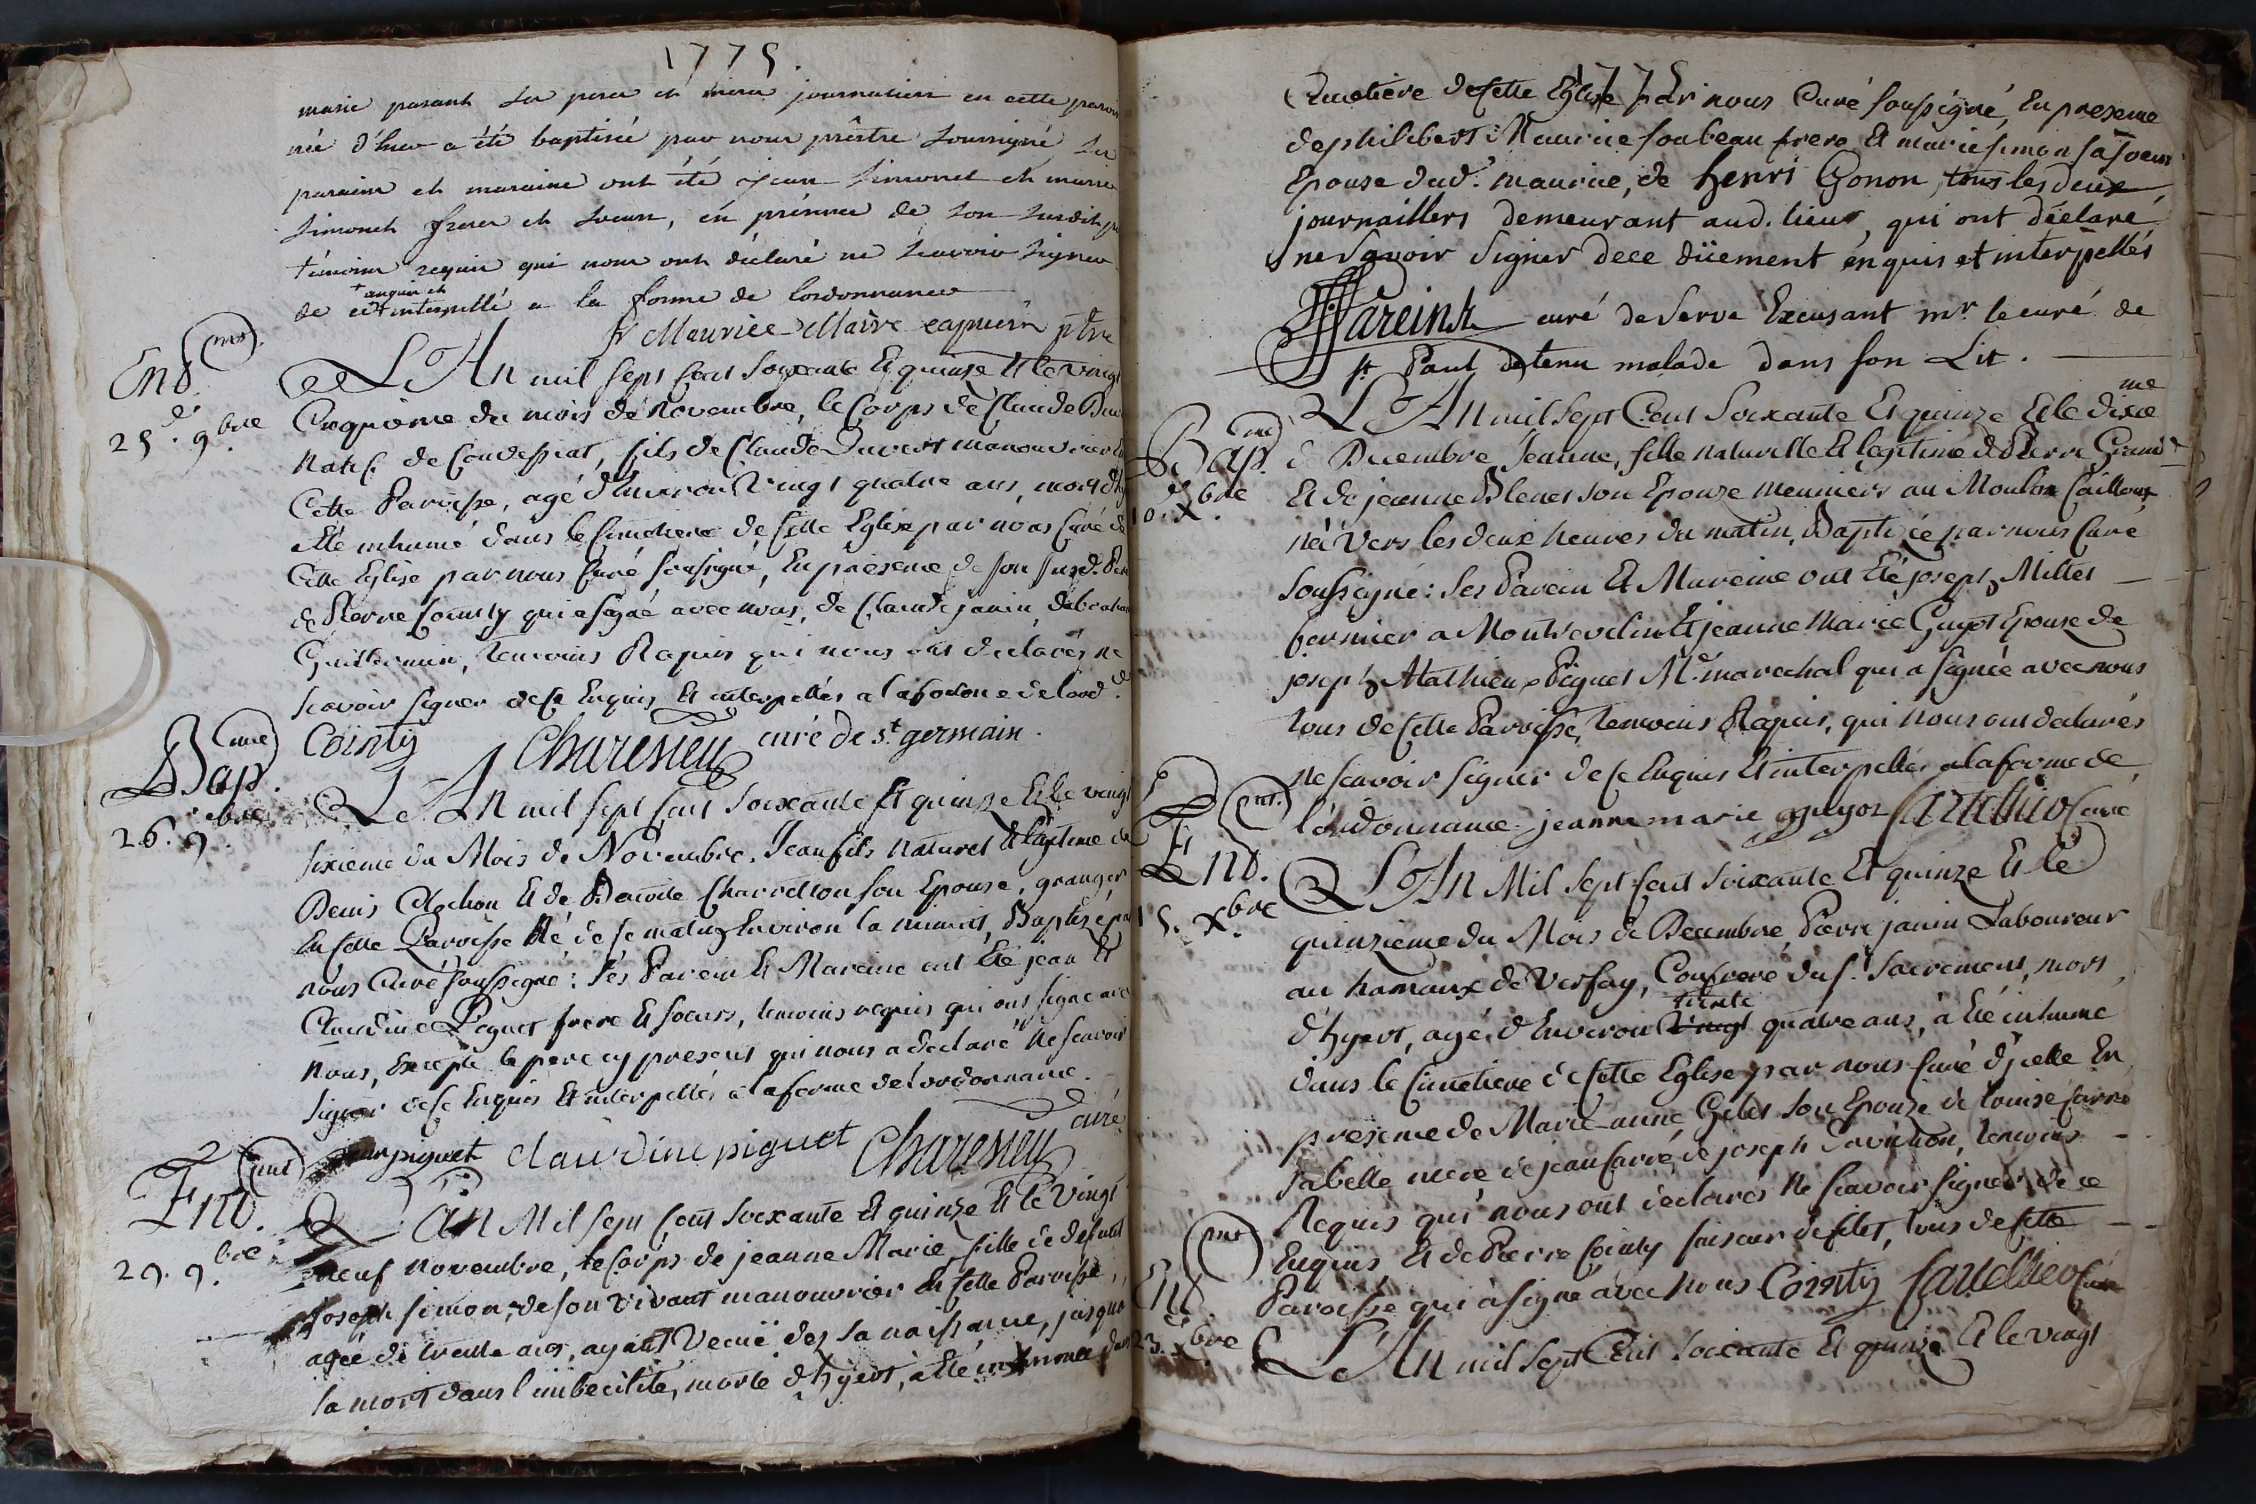 1775.
marie pasant ses pere et mere journaliers en cette paroisse
née d'hier a été baptisée par nous prêtre soussigné ses
parain et maraine ont été jean simonet et marie
simonet frere et soeur, en présence de son susdit
témoins requis qui nous ont déclaré ne scavoir signer
de ce + enquis et interpellé a la forme de lordonnance
fr Maurice Maire capucin ptre
Ent. mt
25.e 9.bre
L'An mil sept cent soixante Et quinze Et le vingt
Cinquieme du mois de Novembre, le Corps de Claude
natif de Condessiat, fils de Claude Duvert manouvrier
Cette Paroisse, agé d'Environ Vingt quatre ans, mort
été inhumé dans le Cimetiere de Cette Eglise par nous Curé de
Cette Eglise par nous Curé soussigné, En présence de son susd. Pere
de Pierre Cointy qui a signé avec nous, de Claude janin,
Guillermin, temoins Requis qui nous ont declarés ne
scavoir signer de ce Enquis Et interpellés a la forme de lord.ce
Cointy Charesieu curé de st. germain.
Bap. me
26. 9.bre
L'An mil sept cent soixante Et quinze Et le vingt
sixieme du Mois de Novembre, Jean fils naturel Et legitime de
Denis Clochon Et de Benoite Charvetton son Epouse, granger
En cette Paroisse Né de ce matin Environ la minuit, Baptisé par
nous Curé soussigné: ses Parein Et Mareine ont Eté jean Et
Claudine Piguet frere Et soeurs, temoins requis qui ont signé avec
nous, Excepté le pere cy present qui nous a declaré Ne scavoir
signer de ce Enquis Et interpellés a la forme de l'ordonnance.
jean piguet claudine piguet Charesieu curé
Ent. mt
29. 9.bre
L'An Mil sept Cent soixante Et quinze Et le Vingt
neuf novembre, le Corps de jeanne Marie fille de defunt
joseph simon, de son vivant manouvrier En cette Paroisse,
agée de trente ans, ayant vecuë dez sa naissance, jusqua
la mort dans l'imbecilité, morte d'hyert, a été inhumée dans
1775
Cimetiere de Cette Eglise par nous Curé soussigné, En presence
de philibert Maurice son beau frere, Et marie simon sa soeur
Epouse dud. maurice, de henri Gonon, tous les deux
journaillers demeurant aud. lieu, qui ont déclaré
ne sçavoir signer de ce dûement enquis et interpellés
Fareinst curé de Serve Excusant mr. le curé de
st Paul detenu malade dans son Lit.
Bap. me
10. X.bre
L'An mil sept Cent soixante Et quinze Et le dixieme
de Decembre Jeanne, fille naturelle Et legitime de Pierre
Et de jeanne Blenet son Epouze meuniers au Moulin Cailloux
né Vers les deux heures du matin, Baptisée par nous Curé
soussigné: ses Parein Et Mareine ont Eté joseph Millet
fermier a Montrevelin Et jeanne Marie Guyot Epouse de
joseph Mathieu Piguet M.e marechal qui a signée avec nous
tous de Cette Paroisse, temoins Requis, qui nous ont declarés
ne scavoir signer de ce Enquis Et interpellés a la forme de
l'ordonnance. jeanne marie guyot curé
Ent. mt
15. X.bre
L'An Mil sept cent soixante Et quinze Et le
quinzieme du Mois de Decembre Pierre janin Laboureur
au hameaux de Versay, Confreré du s. Sacrement, mort
d'hyert, agé d'Environ trente quatre ans, à Eté inhumé
dans le Cimetiere de Cette Eglise par nous Curé d'jcelle En
presence de Marie anne Gelet son Epouze de Louise Carré
sa belle mere de jean Carré, de joseph temoins
Requis qui nous ont declarés ne scavoir signer de ce
Enquis, Et de Pierre Cointy faiseur de filet, tous de Cette
Paroisse qui à signé avec nous Cointy curé
Ent. mt
23. X.bre
L'An mil sept Cent soixante Et quinze Et le vingt